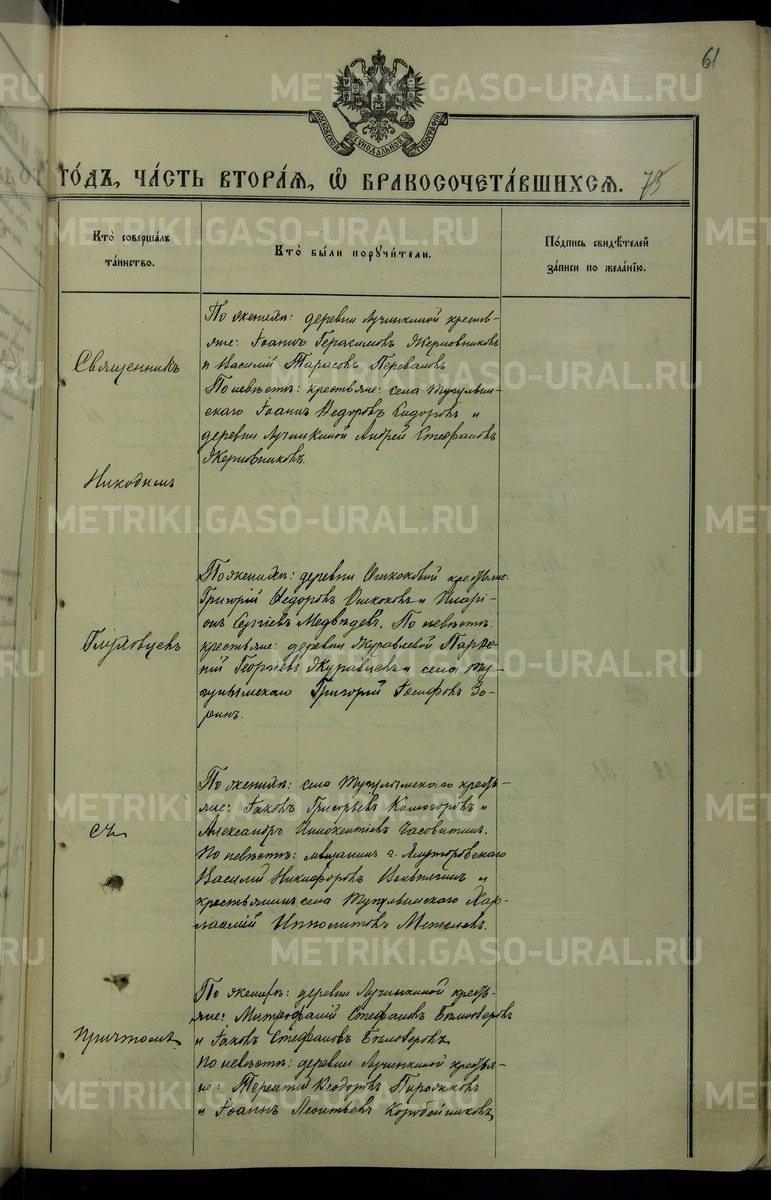 61
МОСКОВСКОЙ СѴНОДАЛЬНОЙ ТИПОГРАФІИ
ГО́ДЪ, ЧА́СТЬ ВТОРА́Я, Ѽ БРАКОСОЧЕТА́ВШИХСЯ. 75
Кто̀ соверша́лъ
та́инство.
Кто̀ бы́ли поручи́тели.
По́дпись свидѣ́телей
за́писи по жела́нїю.
Священникъ
Никодимъ
съ
причтомъ
По женихѣ: деревни Лучинкиной крестья-
яне: Іоаннъ Герасимовъ Жерновниковъ
и Василій Тарасовъ Переваловъ
По невѣстѣ: крестьяне: села Тугулым-
скаго Іоаннъ Ѳедоровъ Сидоровъ и
деревни Лучинкиной Андрей Стефановъ
Жерновниковъ.
По женихѣ: деревни крестьяне:
Григорій Ѳедоровъ и Иларі-
онъ Сергіевъ Медвѣдевъ. По невѣстѣ:
крестьяне: деревни Журавлевой Парѳе-
ній Георгіевъ Журавлевъ и села Ту-
гулымскаго Григорій Іосифовъ Зо-
ринъ.
По женихѣ: села Тугулымскаго кресть-
яне: Іаковъ Григорьевъ Комогоровъ и
Александръ Иннокентіевъ Часовитинъ.
По невѣстѣ: мѣщанинъ г. Ялуторовскаго
Василій Никифоровъ и
крестьянинъ села Тугулымскаго Хар-
лампій Ипполитовъ Метелевъ.
По женихѣ: деревни Лучинкиной кресть-
яне: Митрофаній Стефановъ Бѣлозеровъ
и Іаковъ Стефановъ Бѣлозеровъ
По невѣстѣ: деревни Лучинкиной крестья-
не: Терентій Ѳеодоровъ Пирожковъ
и Іоаннъ Леонтьевъ Коробейниковъ
METRIKI.GASO-URAL.RU